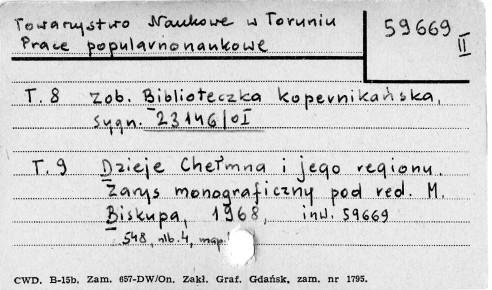 Towarzystwo Naukowe w Toruniu
Prace popularnonaukowe
59669
II
T. 8 zob. Biblioteczka kopernikańska,
sygn. 23146/OI
T. 9 Dzieje Chełmna i jego regionu.
Zarys monograficzny pod red. M.
Biskupa, 1968, inw. 59669
548, nlb. 4, map.
CWD. B-15b. Zam. 657-DW/On. Zakł. Graf. Gdańsk, zam. nr 1795.